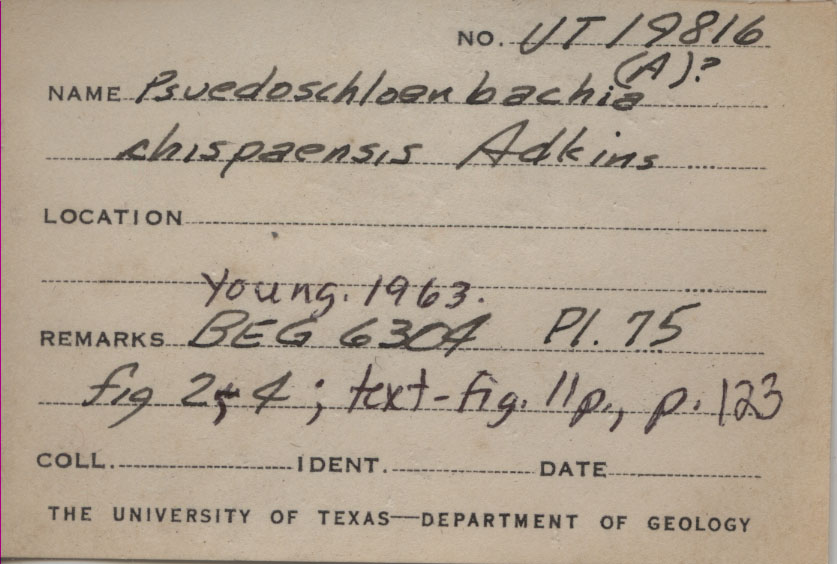 NO. UT 19816
(A)?
NAME Psuedoschloenbachia
chispaensis Adkins
LOCATION
Young. 1963.
REMARKS BEG 6304 Pl. 75
fig 2, 4 ; text-fig. 11p., p. 123
COLL. IDENT. DATE
THE UNIVERSITY OF TEXAS—DEPARTMENT OF GEOLOGY